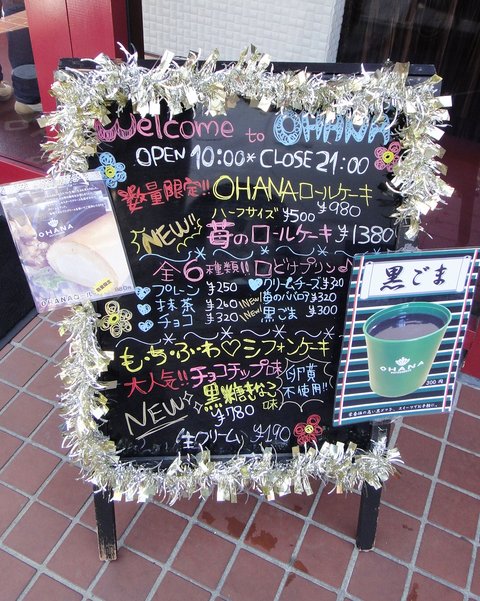 Welcome to OHANA
OPEN 10:00* CLOSE 21:00
数量限定!! OHANAロールケーキ
ハーフサイズ ¥500 ¥980
NEW!! 苺のロールケーキ ¥1380
全6種類!! 口どけプリン♪
プレーン ¥250
クリームチーズ ¥320
抹茶 ¥260
NEW! 苺のババロア ¥320
チョコ ¥320
NEW! 黒ごま ¥300
もっちふわ♡シフォンケーキ
大人気!! チョコチップ味
卵黄不使用!!
NEW 黒糖きなこ味
¥780
生クリーム ¥190
OHANA
OHANAロール
数量限定
黒ごま
OHANA
300円